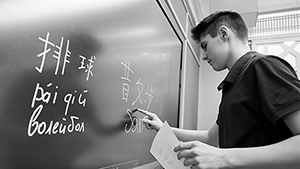 排球
pái qiú
волейбол
散步